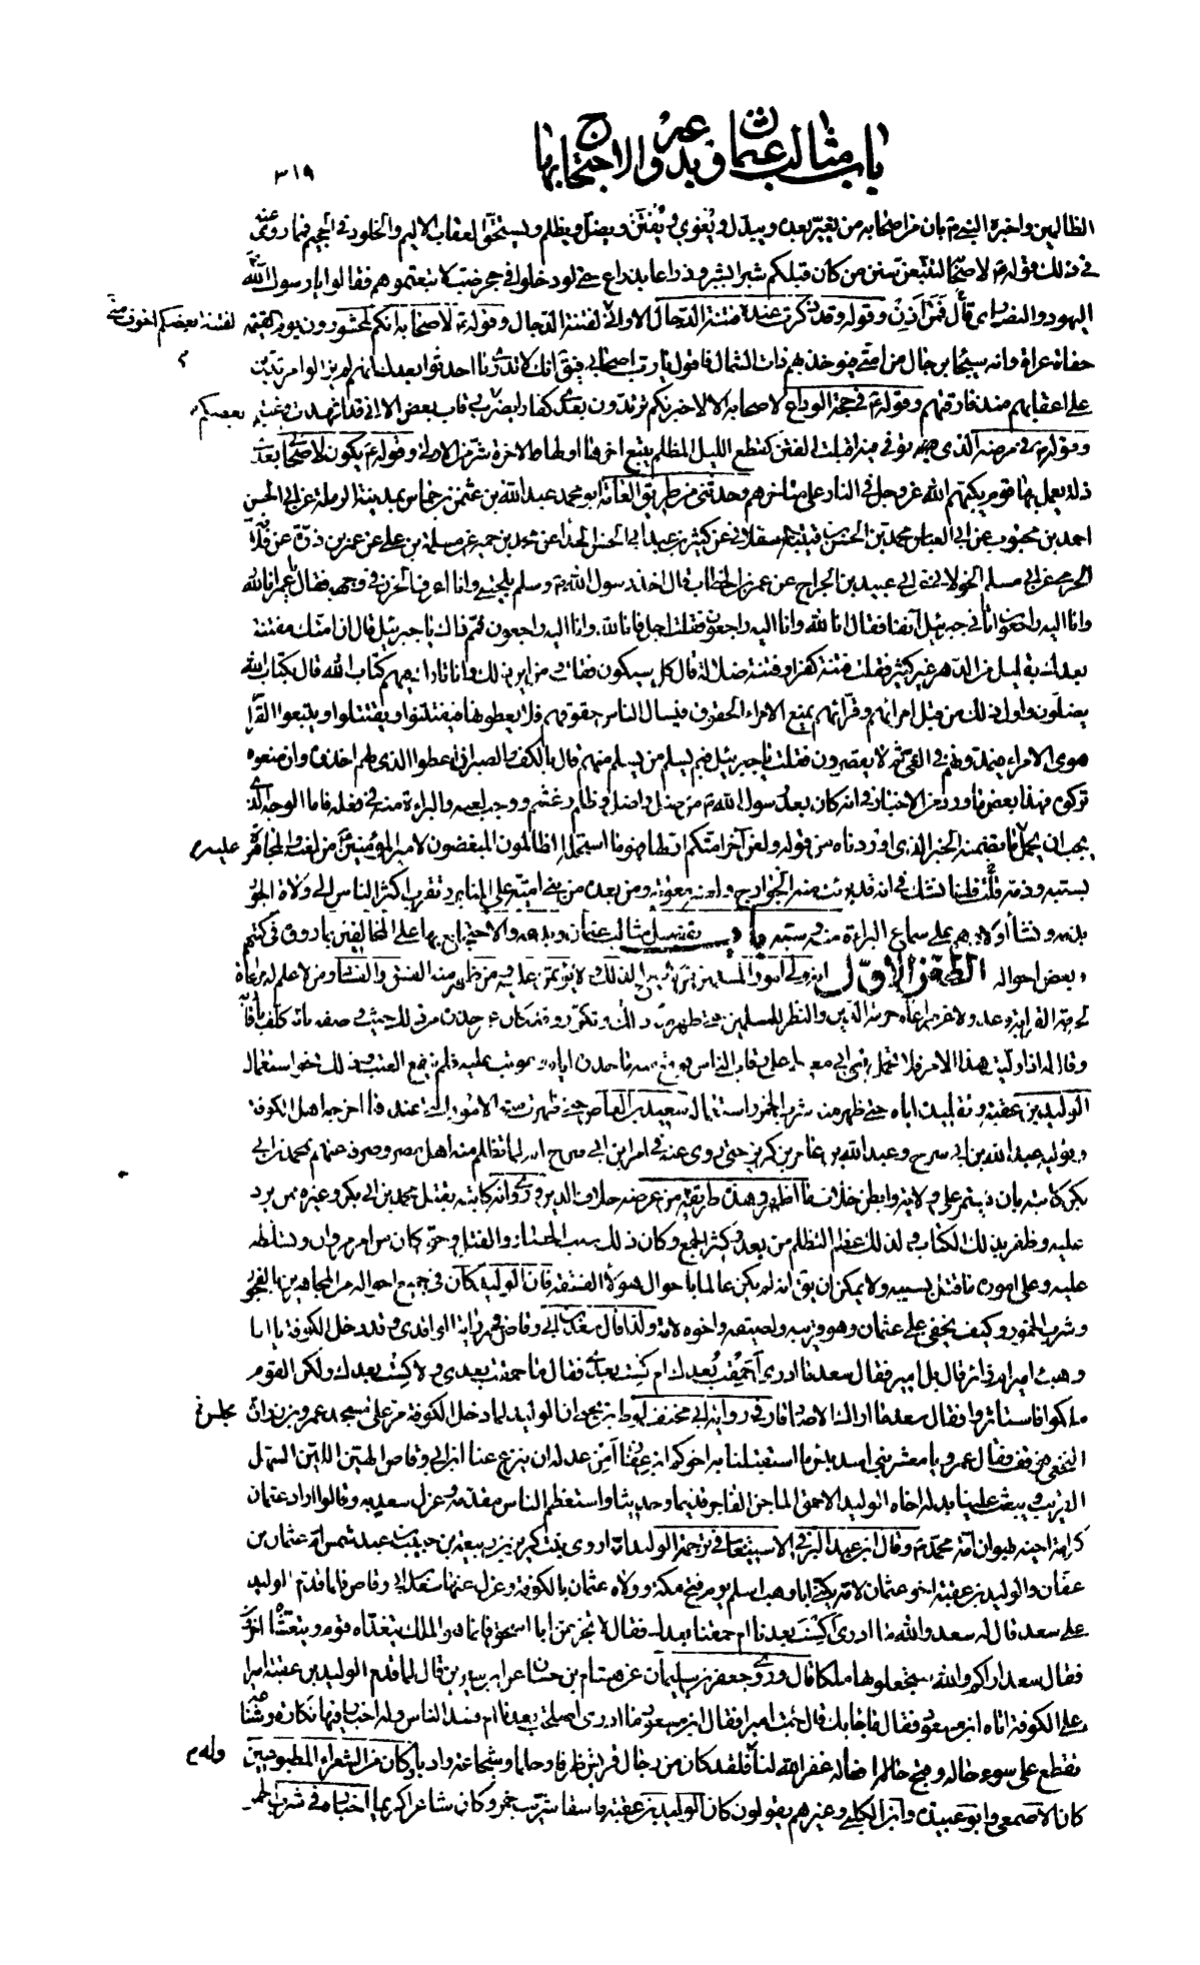 باب مثالب عثمان وبدعه والاحتجاج بها
٣١٩
الظالمين واخبره النبي ص بان من اصحابه من يغير بعده ويبدل ويغوي ويفتن ويضل ويظلم ويستحق العقاب الاليم والخلود في الجحيم فما روي عنه
في ذلك قوله ص لاصحابه لتتبعن سنن من كان قبلكم شبرا بشبر وذراعا بذراع حتى لو دخلوا في جحر ضب لاتبعتموهم فقالوا يا رسول الله
اليهود والنصارى قال فمن اذن وقوله وقد ذكرت عنده فتنة الدجال الا واني لفتنة الدجال وقوله ص لاصحابه انكم محشورون يوم القيمة
لفتنة بعضكم اخوف مني
حفاة عراة وانه سيجاء برجال من امتي فيؤخذ بهم ذات الشمال فاقول يا رب اصحابي فيقال انك لا تدري ما احدثوا بعدك انهم لم يزالوا مرتدين
على اعقابهم منذ فارقتهم وقوله ص في حجة الوداع لاصحابه الا لاخبرنكم ترتدون بعدي كفارا يضرب بعضكم رقاب بعض الا اني قد شهدت وغبتم
بعضكم
وقوله ص في مرضه الذي توفي فيه اقبلت الفتن كقطع الليل المظلم يتبع اخرها اولها الاخرة شر من الاولى وقوله ص يكون لاصحابي بعدي
زلة يعمل بها قوم يكبهم الله عز وجل في النار على مناخرهم وحدثني من طريق العامة ابو محمد عبد الله بن عثمن بن حماس بمدينة الرملة عن ابي الحسن
احمد بن محبوب عن ابي العباس محمد بن الحسن بن قتيبة العسقلاني عن كثير بن عبيد ابي الحسن الحذاء عن محمد بن حمير عن مسلمة بن علي عن عمر بن ذر عن قلابة
الجرمي عن ابي مسلم الخولاني عن ابي عبيدة بن الجراح عن عمر بن الخطاب قال اخذ رسول الله ص وسلم بلحيتي وانا اعرف الحزن في وجهه فقال يا عمر انا لله
وانا اليه راجعون اتاني جبرئيل آنفا فقال انا لله وانا اليه راجعون فقلت اجل فانا لله وانا اليه راجعون فمم ذاك يا جبرئيل قال ان امتك مفتتنة
بعدك بقليل من الدهر غير كثير فقلت فتنة كفر او فتنة ضلالة قال كل سيكون فقلت من اين ذلك وانا تارك فيهم كتاب الله قال بكتاب الله
يضلون واول ذلك من قبل امرائهم وقرائهم يمنع الامراء الحقوق فيسأل الناس حقوقهم فلا يعطوها فيفتتنوا ويقتتلوا ويتبعوا القراء
هوى الامراء فيمدونهم في الغي ثم لا يقصرون فقلت يا جبرئيل فبم يسلم من يسلم منهم قال بالكف والصبر ان اعطوا الذي لهم اخذوه وان منعوه
تركوه فهذا بعض ما ورد من الاخبار في انه كان بعد رسول الله ص من ضل واضل وظلم وغشم ووجب لعنه والبراءة منه في فعله فاما الوجه الذي
يجب ان يحمل ما تضمنه الخبر الذي اوردناه من قوله ولعن آخر امتكم اولها فهو ما استحله الظالمون المبغضون لامير المؤمنين ع من لعنه والمجاهرة
عليه م
بسبه وذمه فلسنا نشك في انه قد برئت منه الخوارج ولعنه معوية ومن بعده من بني امية على المنابر وتقرب اكثر الناس الى ولاة الجور
بذمه ونشأ اولادهم على سماع البراءة منه وسبه باب تفصيل مثالب عثمان وبدعه والاحتجاج بها على المخالفين بما رووه في كتبهم
وبعض احواله الطعن الاول انه ولى امور المسلمين من لا يصلح لذلك ولا يؤتمن عليه ومن ظهر منه الفسق والفساد ومن لا علم له مراعاة
لحرمة القرابة وعدولا عن مراعاة حرمة الدين والنظر للمسلمين حتى ظهر ذلك منه وتكرر وقد كان عمر حذره من ذلك حيث وصفه بانه كلف باقاربه
وقال له اذا وليت هذا الامر فلا تحمل بني ابي معيط على رقاب الناس فوقع منه ما حذره اياه وعوتب عليه فلم ينفع العتب وذلك نحو استعماله
الوليد بن عقبة وتقليده اياه حتى ظهر منه شرب الخمر واستعماله سعيد بن العاص حتى ظهرت منه الامور التي عندها اخرجه اهل الكوفة
وتوليته عبد الله بن ابي سرح وعبد الله بن عامر بن كريز حتى روي عنه في امر ابن ابي سرح انه لما تظلم منه اهل مصر وصرفه عنهم بمحمد بن ابي
بكر كاتبه بان يستمر على ولايته وابطن خلاف ما اظهر وهذه طريقة من غرضه خلاف الدين وروي انه كاتبه بقتل محمد بن ابي بكر وغيره ممن يرد
عليه وظفر بذلك الكتاب ولذلك عظم التظلم من بعد وكثر الجمع وكان ذلك سبب الحصار والقتل وحتى كان من امر مروان وتسلطه
عليه وعلى اموره ما قتل بسببه ولا يمكن ان يقال انه لم يكن عالما باحوال هؤلاء الفسقة فان الوليد كان في جميع احواله من المجاهرين بالفجور
وشرب الخمور وكيف يخفى على عثمان وهو قريبه ولصيقه واخوه لامه ولذا قال سعد بن ابي وقاص في رواية الواقدي وقد دخل الكوفة يا ابا
وهب امير ام زائر قال بل امير فقال سعد ما ادري أحمقت بعدك ام كست بعدي فقال ما حمقت بعدي ولا كست بعدك ولكن القوم
ملكوا فاستاثروا فقال سعد ما اراك الا صادقا وفي رواية ابي مخنف لوط بن يحيى ان الوليد لما دخل الكوفة مر على مسجد عمرو بن زرارة
مجلس خ
النخعي فوقف فقال عمرو يا معشر بني اسد بئس ما استقبلنا به اخوكم ابن عفان أمن عدله ان ينزع عنا ابن ابي وقاص الهين اللين السهل
القريب ويبعث علينا بدله اخاه الوليد الاحمق الماجن الفاجر قديما وحديثا واستعظم الناس مقدمه وعزل سعد به وقالوا اراد عثمان
كرامة اخيه بهوان امة محمد ص وقال ابن عبد البر في الاستيعاب في ترجمة الوليد امه اروى بنت كريز بن ربيعة بن حبيب بن عبد شمس ام عثمان بن
عفان والوليد بن عقبة اخو عثمان لامه يكنى ابا وهب اسلم يوم فتح مكة وولاه عثمان بالكوفة وعزل عنها سعد بن ابي وقاص فلما قدم الوليد
على سعد قال له سعد والله ما ادري اكست بعدنا ام حمقنا بعدك فقال لا تجزعن ابا اسحق فانما هو الملك يتغداه قوم ويتعشاه آخرون
فقال سعد اراكم والله ستجعلونها ملكا قال وروى جعفر بن سليمان عن هشام بن حسان عن ابن سيرين قال لما قدم الوليد بن عقبة اميرا
على الكوفة اتاه ابن مسعود فقال ما جاء بك قال جئت اميرا فقال ابن مسعود ما ادري اصلحت بعدنا ام فسد الناس وله اخبار فيها نكارة وشناعة
تقطع على سوء حاله وقبح افعاله غفر الله لنا وله فلقد كان من رجال قريش ظرفا وحلما وشجاعة وادبا وكان من الشعراء المطبوعين
وله م
كان الاصمعي وابو عبيدة وابن الكلبي وغيرهم يقولون كان الوليد بن عقبة فاسقا شريب خمر وكان شاعرا كريما اخباره في شرب الخمر